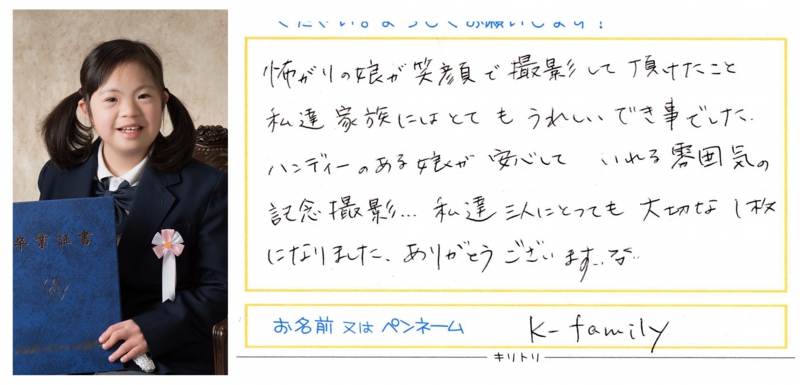 卒業証書
ください。よろしくお願いします！
怖がりの娘が笑顔で撮影して頂けたこと
私達家族にはとてもうれしいでき事でした.
ハンディーのある娘が安心していれる雰囲気の
記念撮影... 私達三人にとっても大切な1枚
になりました、ありがとうございます..
お名前又はペンネーム K-family
キリトリ